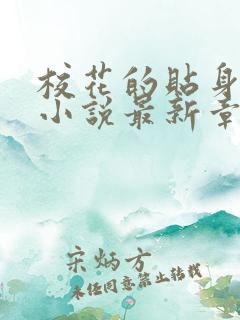 校花的貼身
小說最新章
宋炳方
未经同意禁止转载